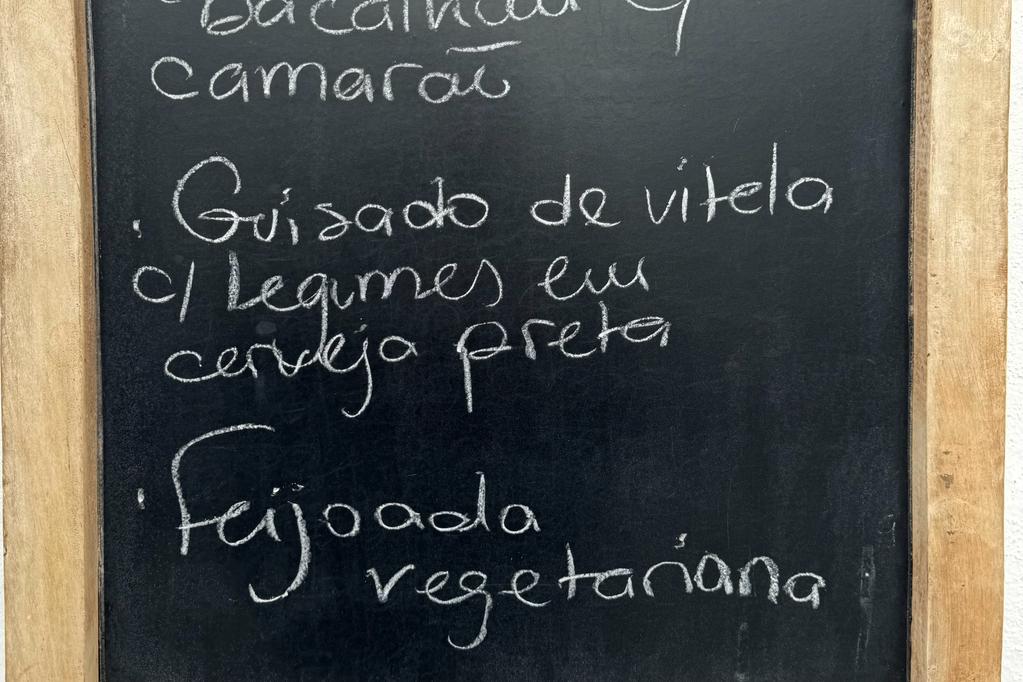 bacalhau c/
camarão
· Guisado de vitela
c/ Legumes em
cerveja preta
· Feijoada
vegetariana